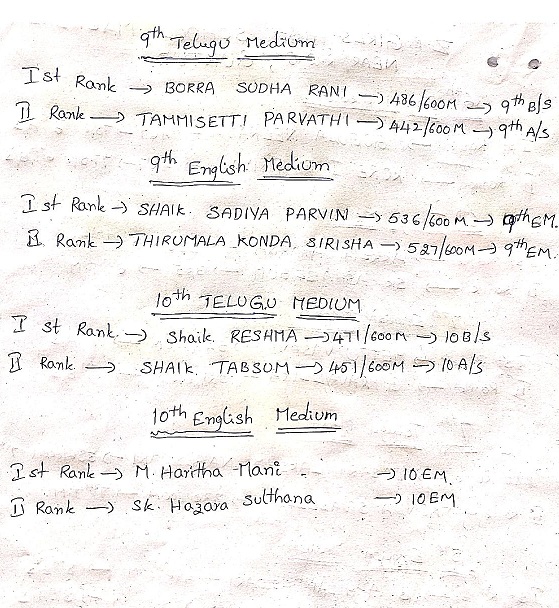 9th Telugu Medium
Ist Rank → BORRA SUDHA RANI → 486/600M → 9th B/S
II Rank → TAMMISETTI PARVATHI → 442/600M → 9th A/S
9th English Medium
Ist Rank → SHAIK. SADIYA PARVIN → 536/600M → 9th EM.
II Rank → THIRUMALA KONDA SIRISHA → 527/600M → 9th EM.
10th TELUGU MEDIUM
I st Rank. → Shaik. RESHMA → 471/600M → 10 B/S
II Rank → SHAIK. TABSUM → 451/600M → 10 A/S
10th English Medium
Ist Rank → M. Haritha Mani → 10 EM.
II Rank → Sk. Hazara Sulthana → 10 EM